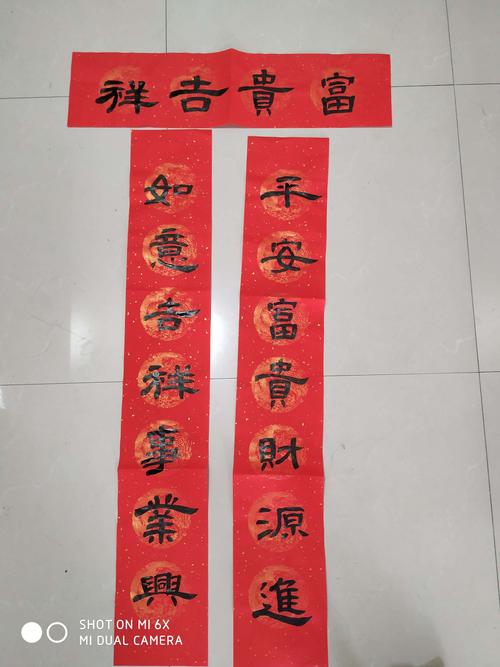 富貴吉祥
平安富貴財源進
如意吉祥事業興
SHOT ON MI 6X
MI DUAL CAMERA